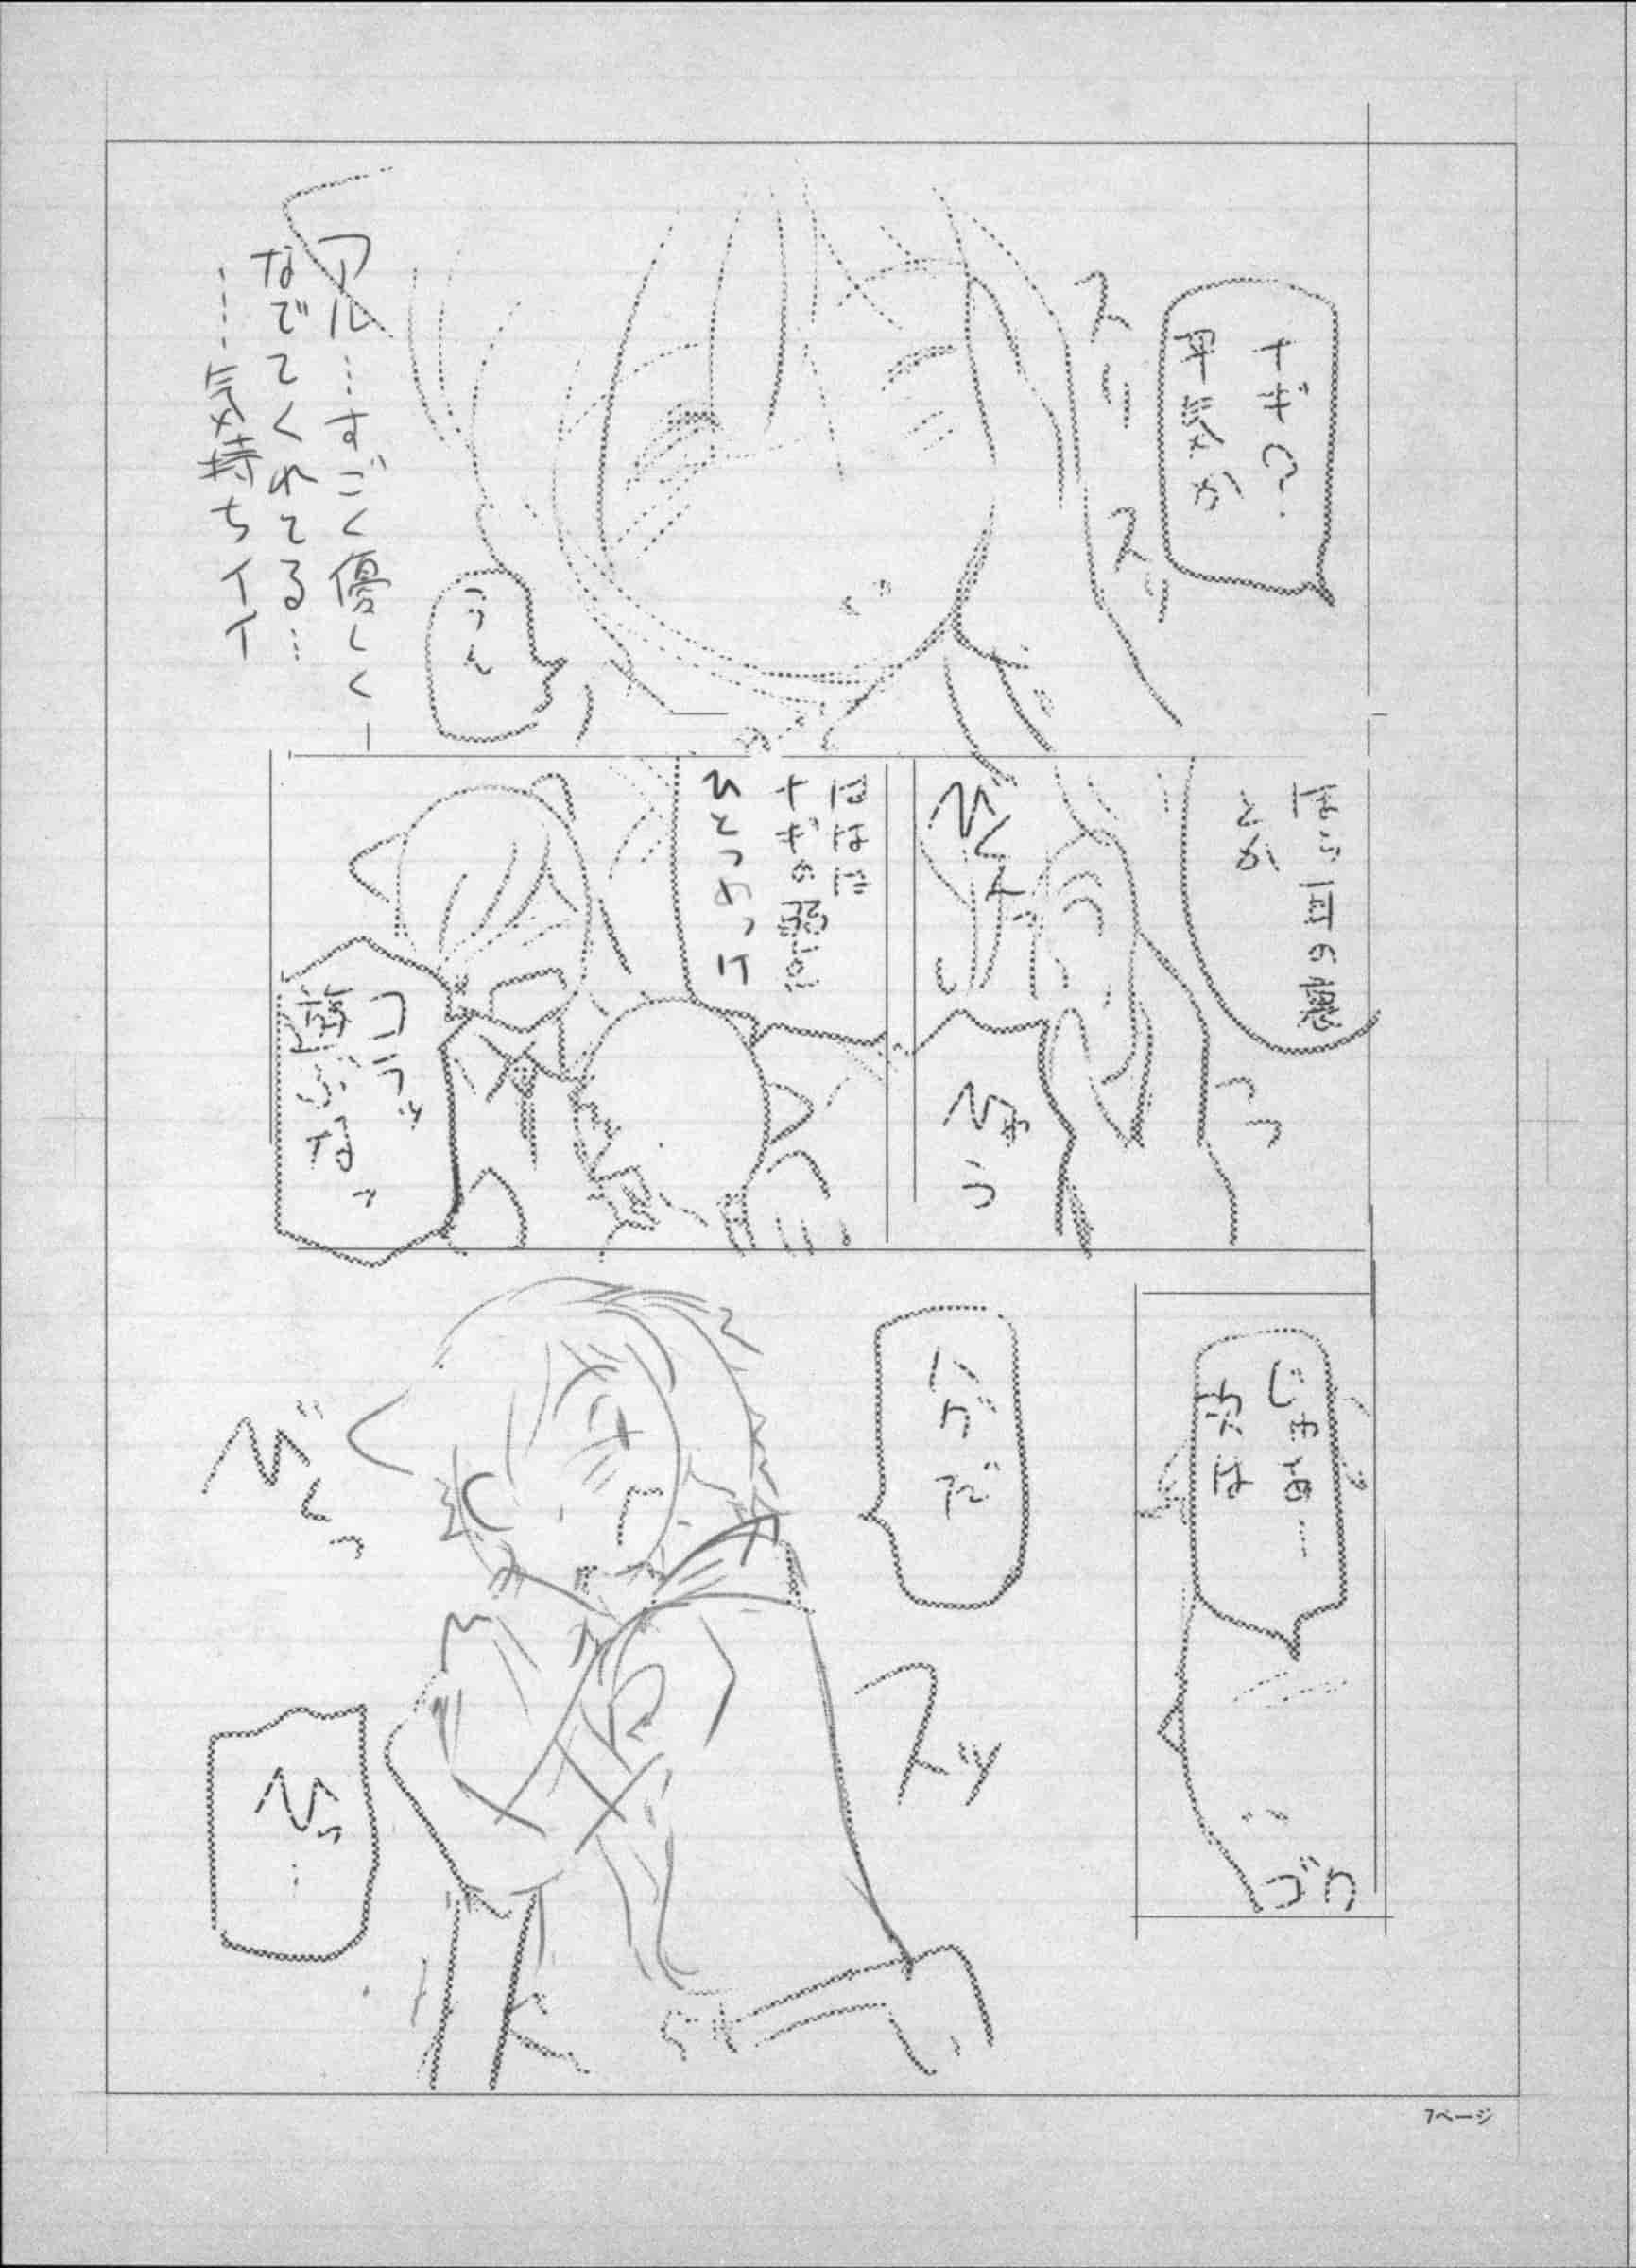 ナギ?
平気か
スリ
スリ
うん
アル…すごく優しく
なでてくれてる…
……気持ちイイ
耳の
とか
びくんっ
ひゃう
ははは
ナギの弱点
ひとつめっけ
コラッ
じゃあ…
次は
ゴク
ハグだ
スッ
びくっ
ひっ…
7ページ